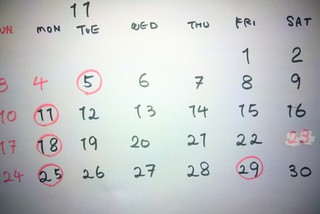 11
UN MON TUE WED THU FRI SAT
1 2
3 4 5 6 7 8 9
10 11 12 13 14 15 16
17 18 19 20 21 22 23
24 25 26 27 28 29 30